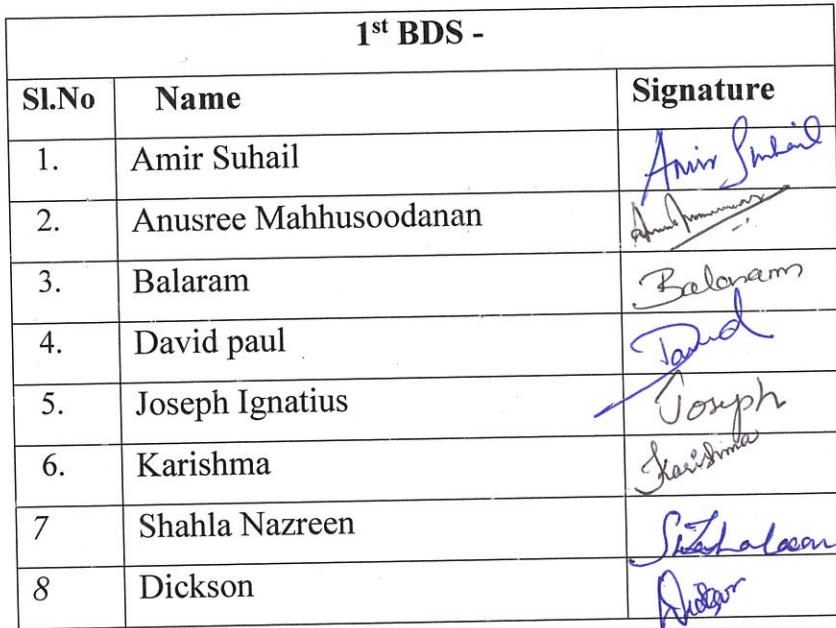 1st BDS -
Sl.No Name Signature
1. Amir Suhail Amir Suhail
2. Anusree Mahhusoodanan
3. Balaram Balaram
4. David paul David
5. Joseph Ignatius Joseph
6. Karishma Karishma
7 Shahla Nazreen
8 Dickson